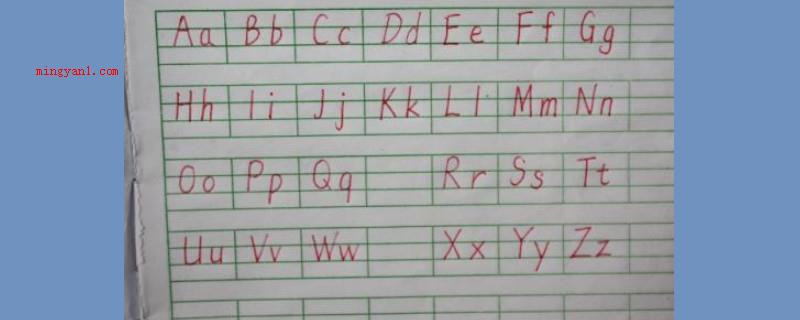 Aa Bb Cc Dd Ee Ff Gg
mingyanl.com
Hh Ii Jj Kk Ll Mm Nn
Oo Pp Qq Rr Ss Tt
Uu Vv Ww Xx Yy Zz